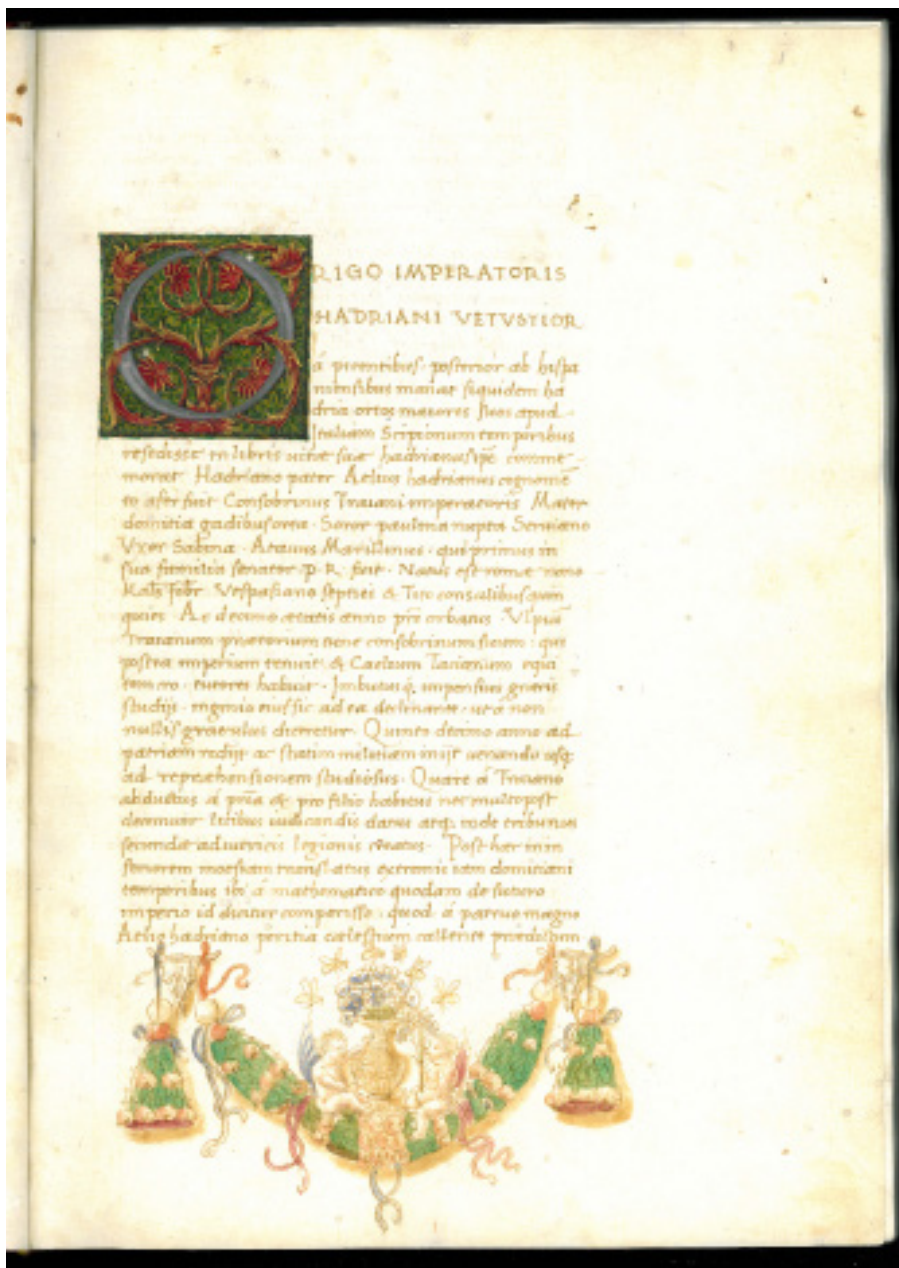 ORIGO IMPERATORIS
HADRIANI VETVSTIOR
á parentibus posterior ab hispa
niensibus manat siquidem ha
dria ortos maiores suos apud
Italiam Scipionum temporibus
resedisse in libris uitae suae hadrianus ipse comme
morat Hadriano pater Aelius hadrianus cognomẽ
to afer fuit Consobrinus Traiani imperatoris Mater
domitia gadibus orta · Soror paulina nupta Seruiano
Vxor Sabina · Atauus Marillinus · qui primus in
sua familia senator p. R. fuit · Natus est romae nono
Kal's febr̃ Vespasiano septies & Tito consulibus quin
quies · Ac decimo aetatis anno pr̃e orbatus · Vlpiũ
Traianum praetorium tunc consobrinum suum : qui
postea imperium tenuit & Caelium Tacianum equi
tem ro · tutores habuit · Imbutusq; impensius grecis
studijs · ingenio eius sic ad ea declinante · ut a non
nullis graeculus diceretur · Quinto decimo anno ad
patriam redijt ac statim militiam inijt uenando usq;
ad reprehensionem studiosus · Quare á Traiano
abductus á pr̃ia & pro filio habitus nec multo post
decemuir litibus iudicandis datus atq; inde tribunus
secundae adiutricis legionis creatus · Post haec in in
feriorem moesiam translatus extremis iam domitiani
temporibus ibi á mathematico quodam de futuro
imperio id dicitur comperisse · quod á patruo magno
Aelio hadriano peritia caelestium callente praedictum